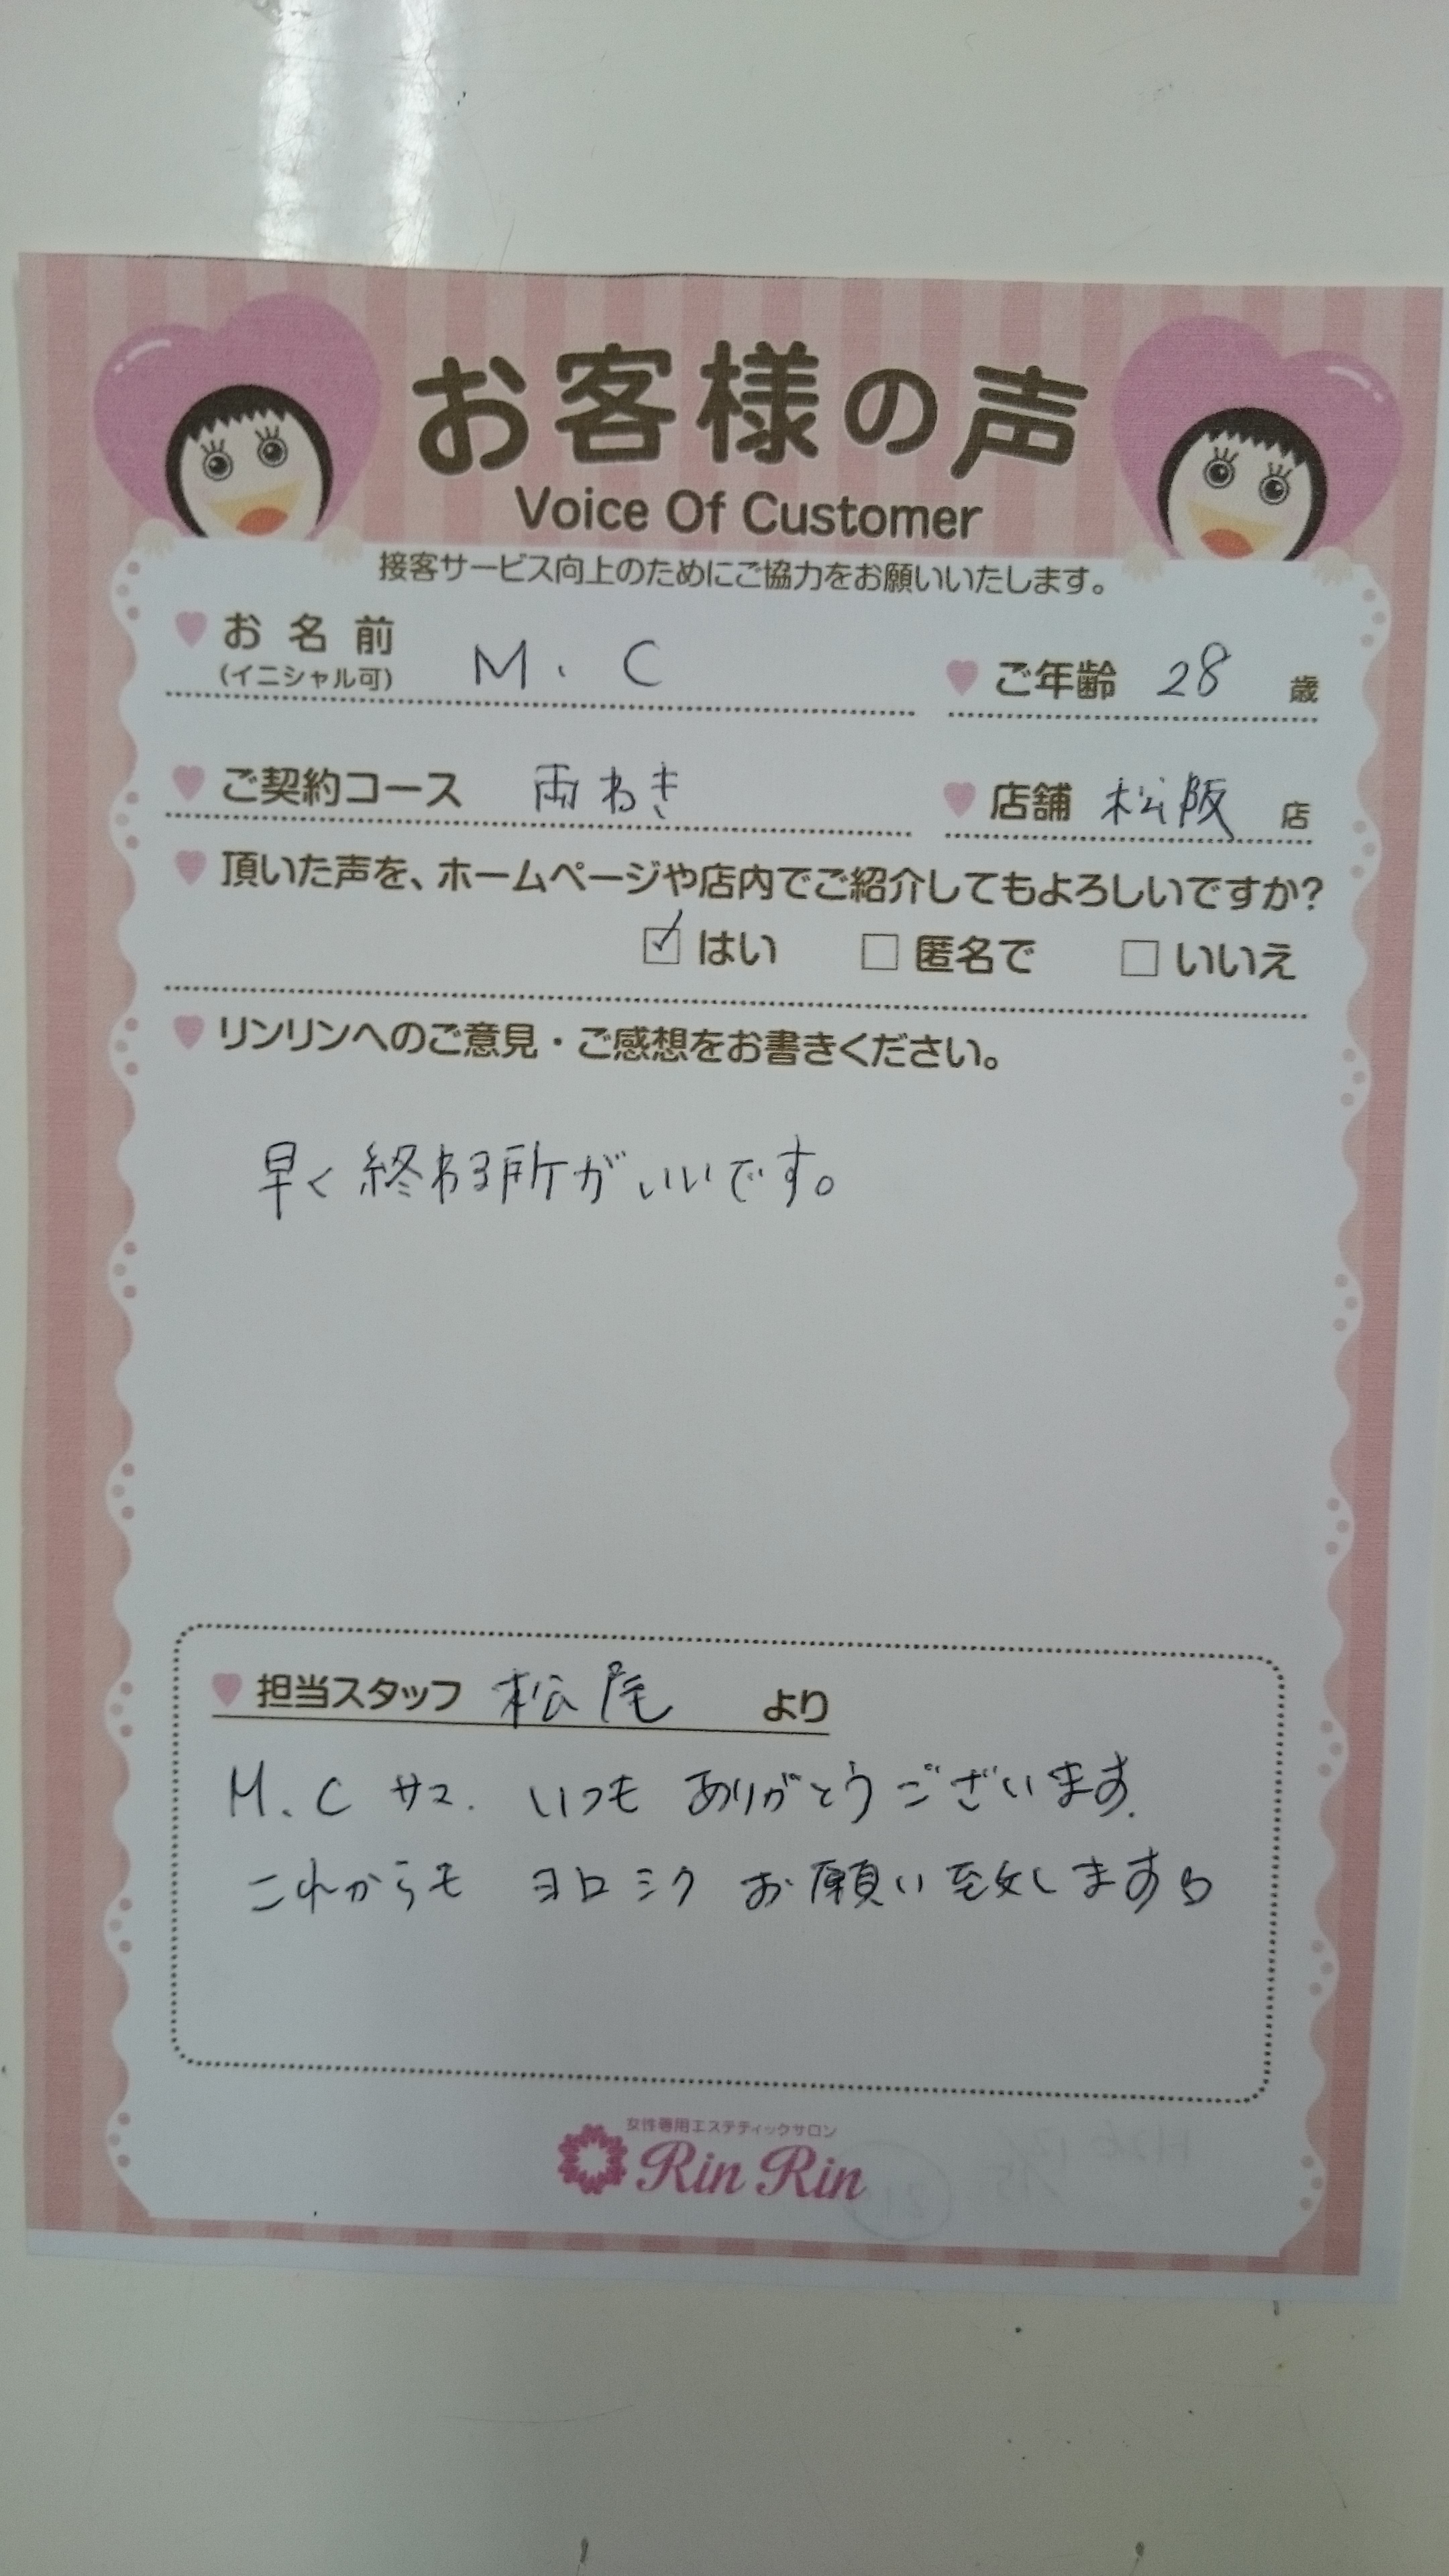 お客様の声
Voice Of Customer
接客サービス向上のためにご協力をお願いいたします。
お名前 M.C ご年齢 28 歳
(イニシャル可)
ご契約コース 両わき 店舗 松阪 店
頂いた声を、ホームページや店内でご紹介してもよろしいですか?
はい 匿名で いいえ
リンリンへのご意見・ご感想をお書きください。
早く終わる所がいいです。
担当スタッフ 松尾 より
M.C サマ. いつも ありがとうございます.
これからも ヨロシク お願い致します
女性専用エステティックサロン
Rin Rin